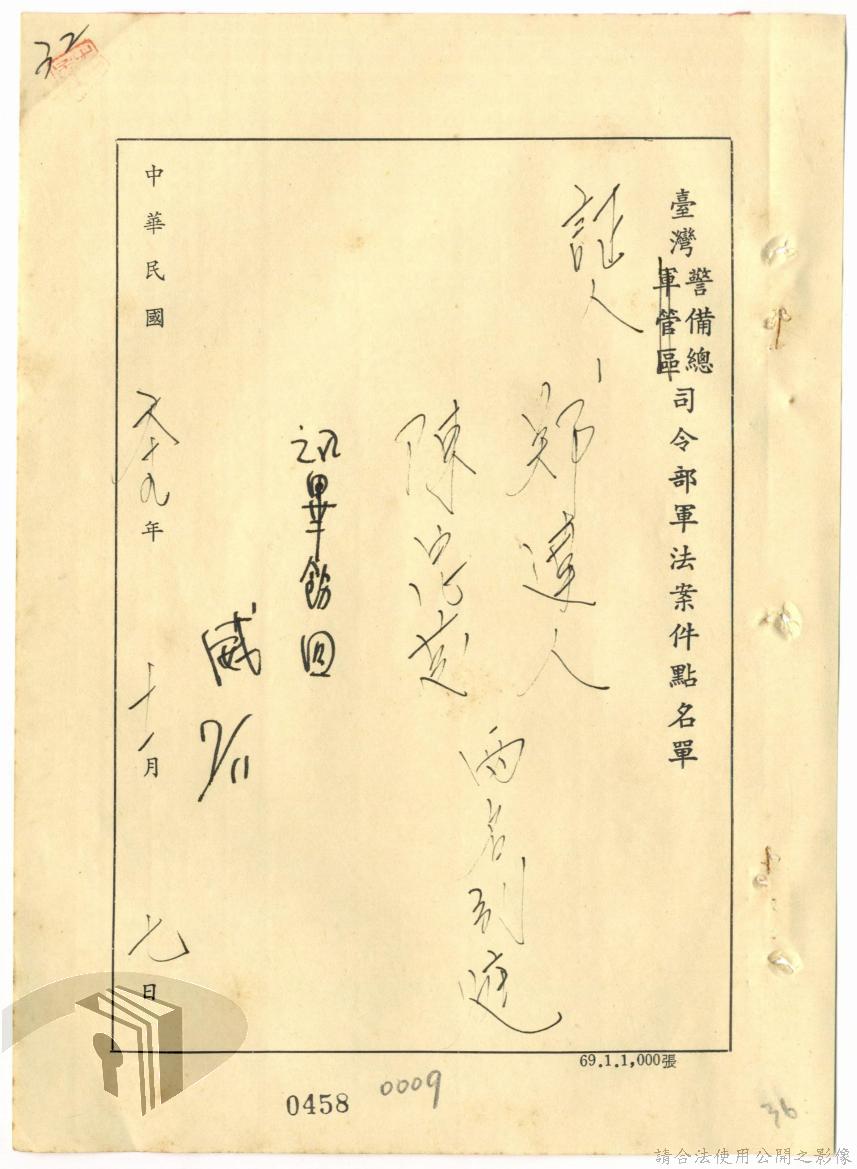 32
臺灣警備總軍管區司令部軍法案件點名單
証人、鄭達人
陳
兩名到庭
訊畢飭回
威 7/11
中華民國六十九年十一月七日
69.1.1,000張
0458
0009
36
請合法使用公開之影像